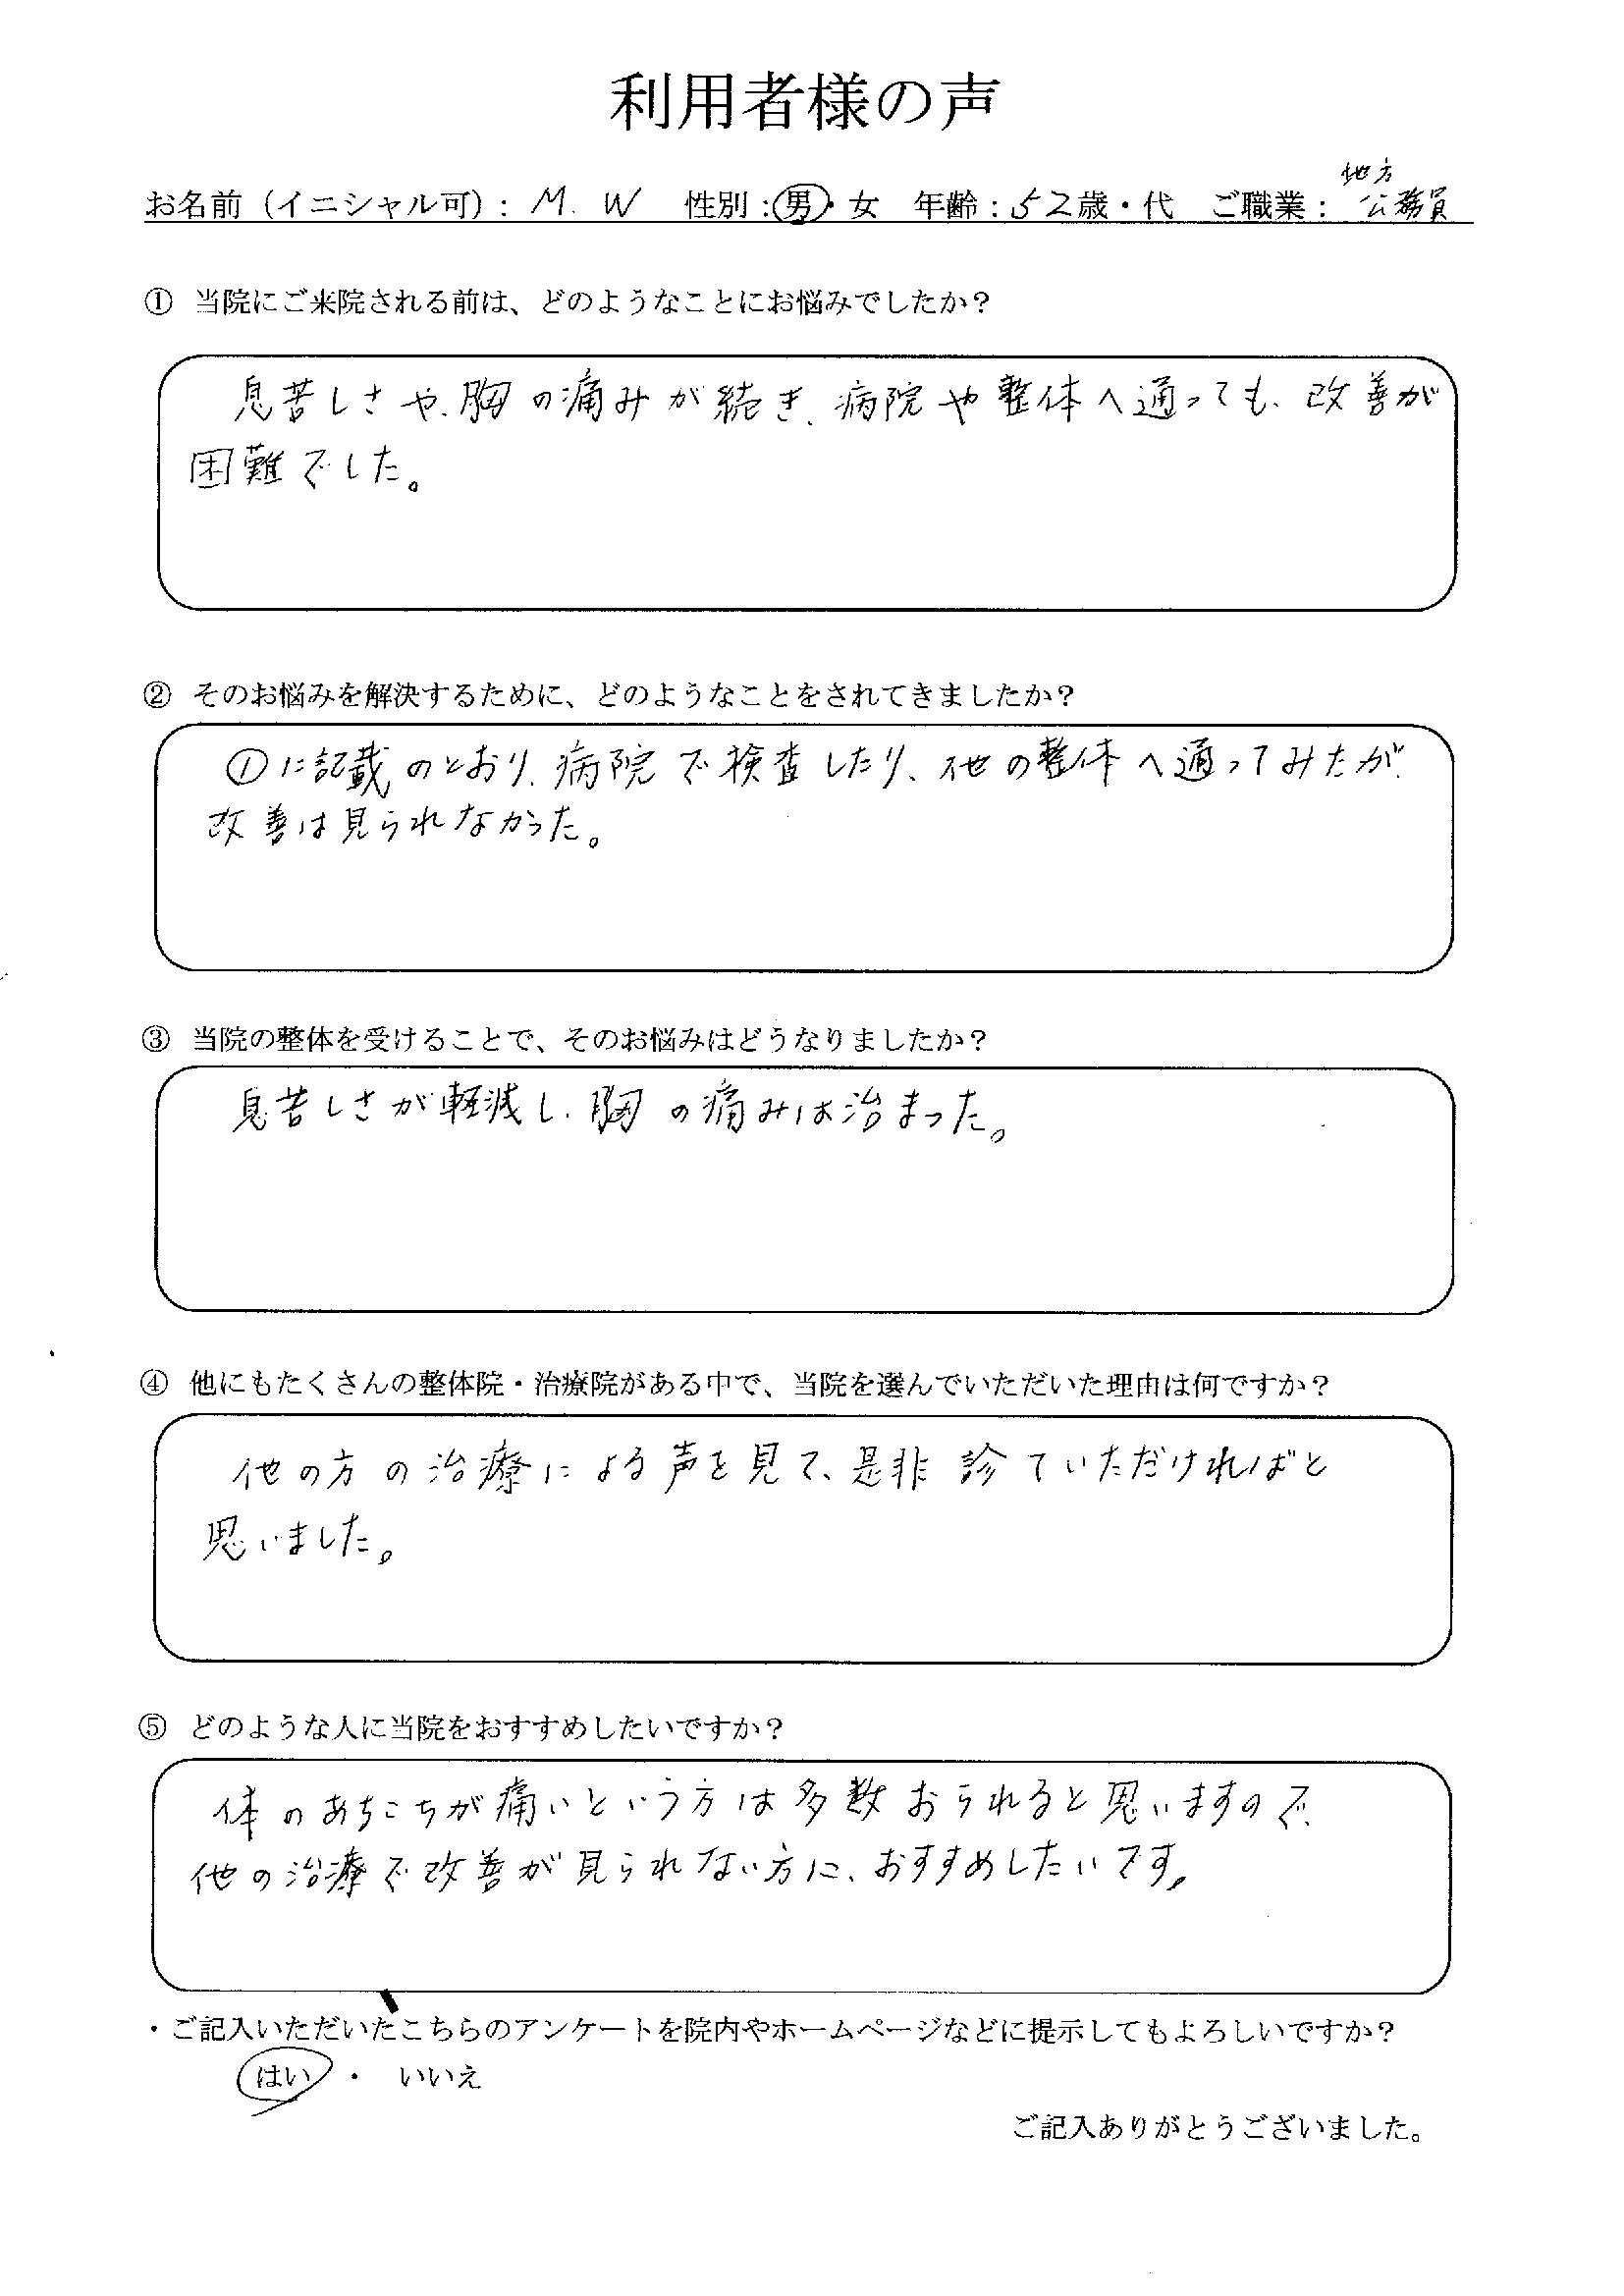 利用者様の声
お名前（イニシャル可）：M. W 性別：男・女 年齢：52歳・代 ご職業：地方公務員
① 当院にご来院される前は、どのようなことにお悩みでしたか？
息苦しさや、胸の痛みが続き、病院や整体へ通っても、改善が
困難でした。
② そのお悩みを解決するために、どのようなことをされてきましたか？
①に記載のとおり、病院で検査したり、他の整体へ通ってみたが
改善は見られなかった。
③ 当院の整体を受けることで、そのお悩みはどうなりましたか？
息苦しさが軽減し、胸の痛みは治まった。
④ 他にもたくさんの整体院・治療院がある中で、当院を選んでいただいた理由は何ですか？
他の方の治療による声を見て、是非診ていただければと
思いました。
⑤ どのような人に当院をおすすめしたいですか？
体のあちこちが痛いという方は多数おられると思いますので、
他の治療で改善が見られない方に、おすすめしたいです。
・ご記入いただいたこちらのアンケートを院内やホームページなどに提示してもよろしいですか？
はい ・ いいえ
ご記入ありがとうございました。